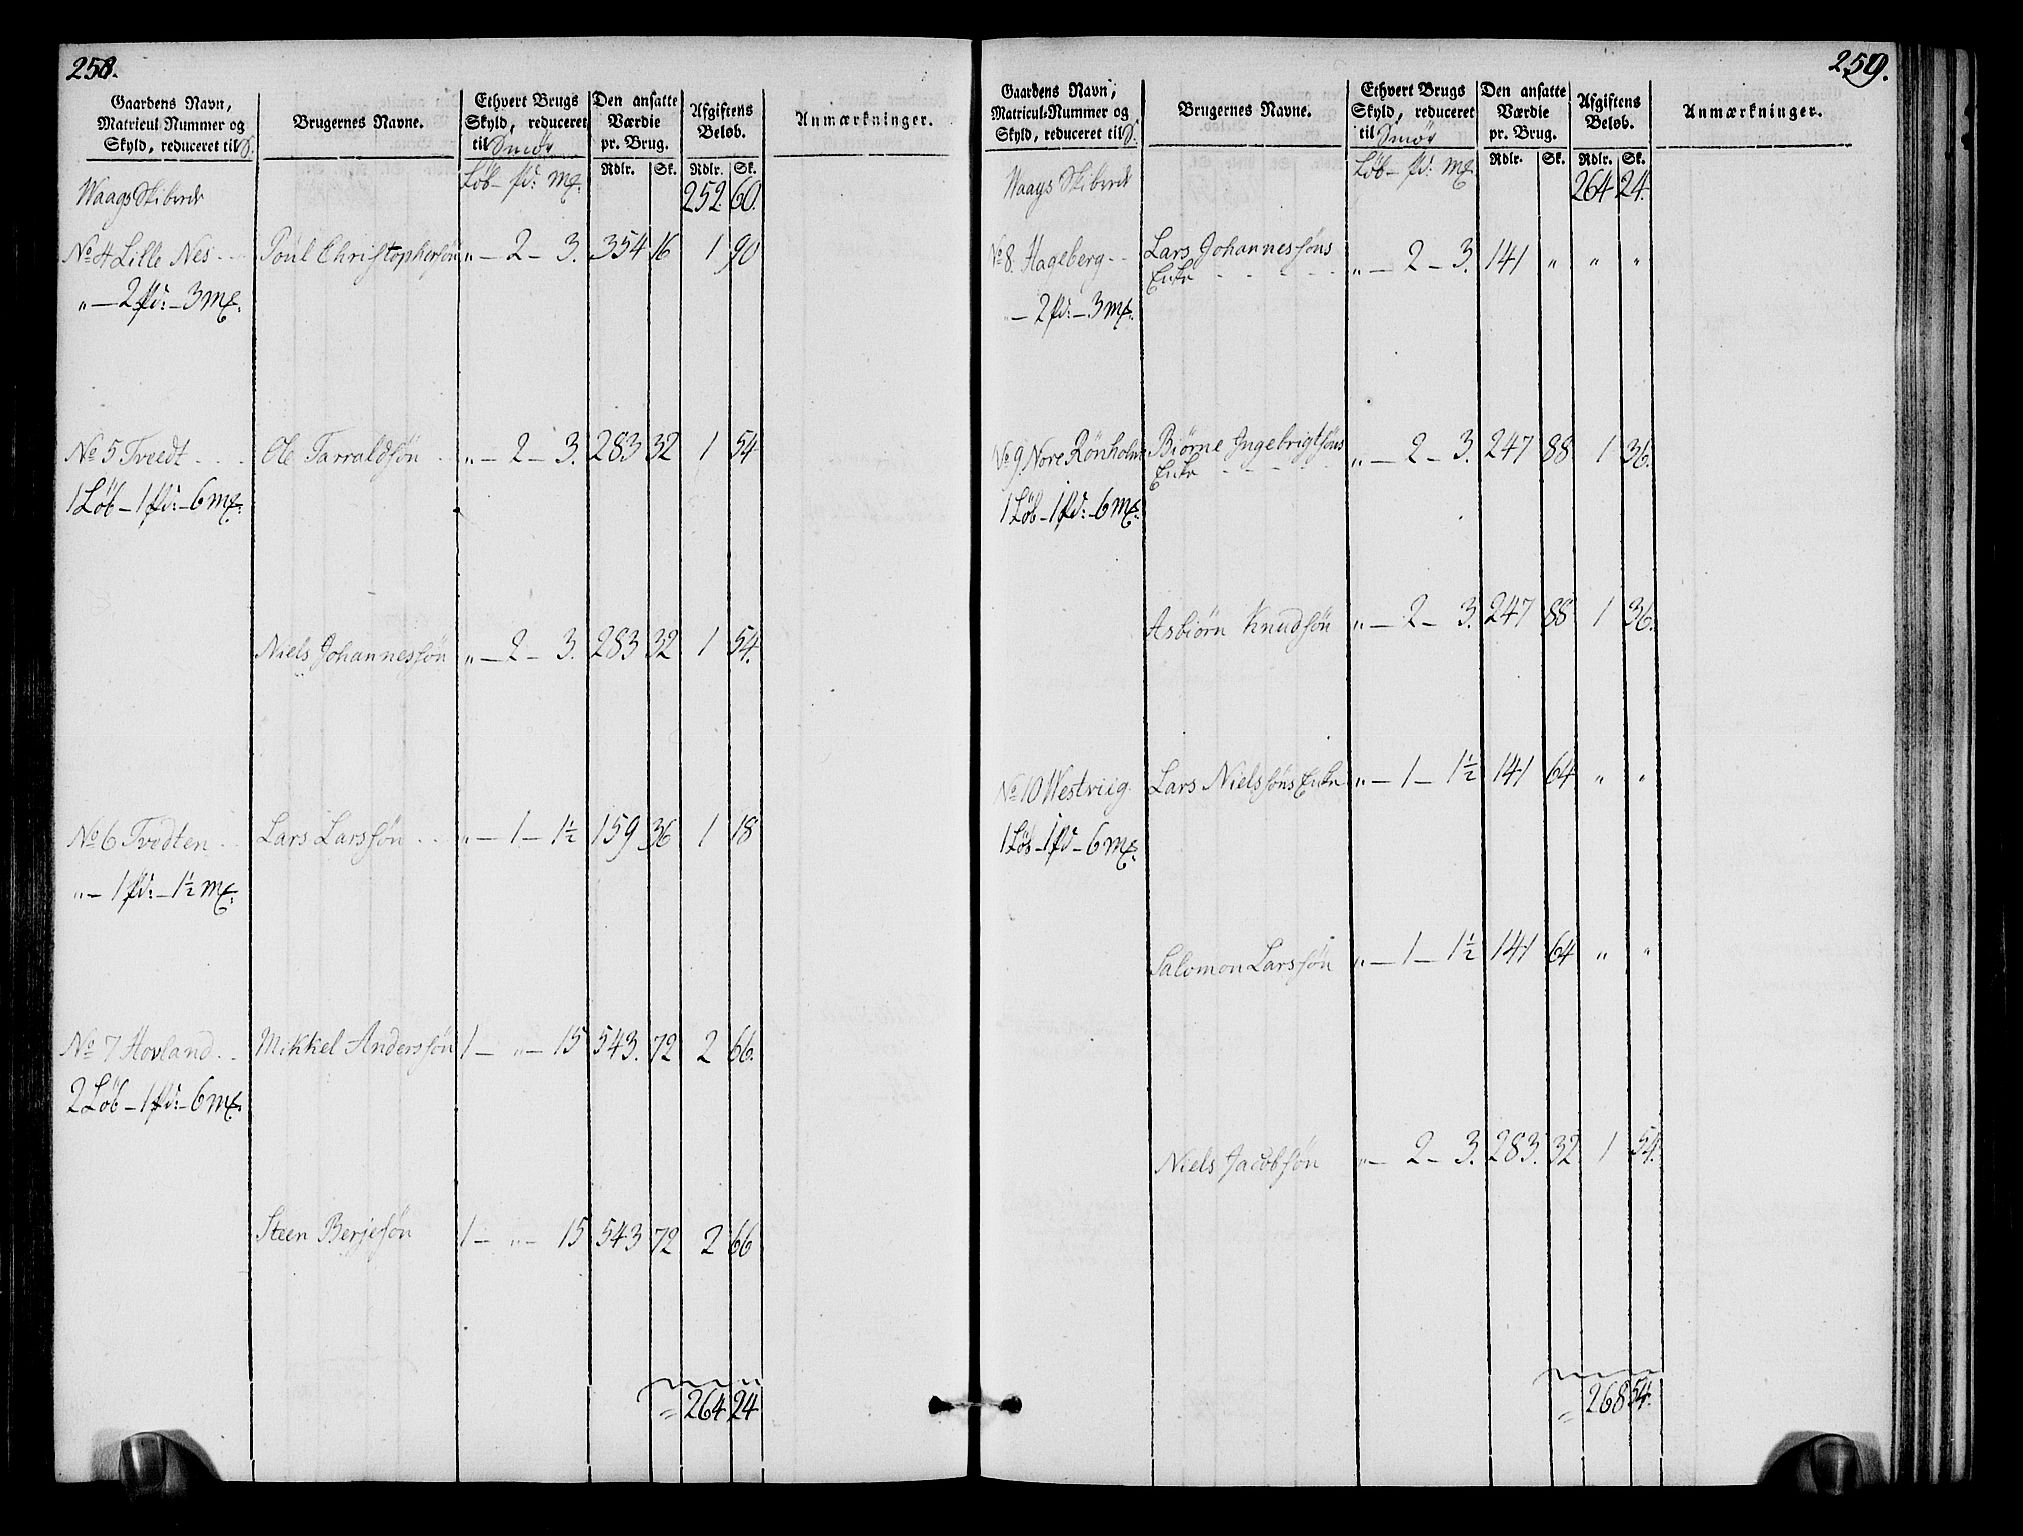 258.
Gaardens Navn, Matricul-Nummer og Skyld, reduceret til S. | Brugernes Navne. | Ethvert Brugs Skyld, reduceret til Smør | Den ansatte Værdie pr. Brug. | Afgiftens Beløb. | Anmærkninger.
Rdlr. | Sk. | Rdlr. | Sk.
Waags Skibrede | Løb - pd: mg. | 252. | 60.
No 4 Lille Nes - - | Poul Christophersøn | " - 2 - 3. | 354 | 16 | 1 | 90
" - 2 pd: - 3 mg.
No 5 Tvedt - - - | Ole Tarraldsøn - - | " - 2 - 3. | 283 | 32 | 1 | 54
1 Løb - 1 pd: - 6 mg.
Niels Johannessøn | " - 2 - 3. | 283 | 32 | 1 | 54.
No 6 Tvedten - - | Lars Larssøn - - | " - 1 - 1½ | 159 | 36 | 1 | 18
" - 1 pd: - 1½ mg.
No 7 Hovland - - | Mikkel Anderssøn | 1 - " - 15 | 543. | 72 | 2 | 66.
2 Løb - 1 pd: - 6 mg.
Steen Berjesøn | 1 - " - 15 | 543 | 72 | 2 | 66
= 264 | 24
259.
Gaardens Navn, Matricul-Nummer og Skyld, reduceret til S. | Brugernes Navne. | Ethvert Brugs Skyld, reduceret til Smør | Den ansatte Værdie pr. Brug. | Afgiftens Beløb. | Anmærkninger.
Rdlr. | Sk. | Rdlr. | Sk.
Waags Skibrede | Løb - pd: mg | 264 | 24.
No 8. Hageberg - - | Lars Johannessøns
Enke - - - - | " - 2 - 3. | 141 | " | " | "
" - 2 pd: - 3 mg.
No 9. Nore Rönholm | Biørne Ingebrigtsøns
Enke - - - - | " - 2 - 3. | 247 | 88 | 1 | 36.
1 Løb - 1 pd: - 6 mg.
Asbiørn Knudsøn | " - 2 - 3. | 247 | 88 | 1 | 36.
No 10 Westviig - | Lars Nielssøns Enke | " - 1 - 1½ | 141 | 64 | " | "
1 Løb - 1 pd - 6 mg.
Salomon Larssøn | " - 1 - 1½ | 141 | 64 | " | "
Niels Jacobsøn | " - 2 - 3. | 283. | 32 | 1 | 54.
= 268 | 54.